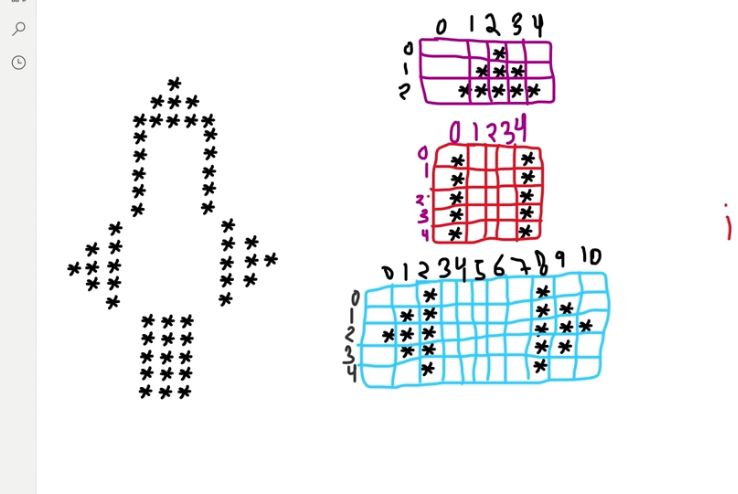 *
* * *
* * * * *
* *
* *
* *
* *
* *
* *
* * * *
* * * * * *
* * * *
* *
* * *
* * *
* * *
* * *
* * *
0 1 2 3 4
0 *
1 * * *
2 * * * * *
0 1 2 3 4
0 * *
1 * *
2 * *
3 * *
4 * *
0 1 2 3 4 5 6 7 8 9 10
0 * *
1 * * * *
2 * * * * * *
3 * * * *
4 * *
i